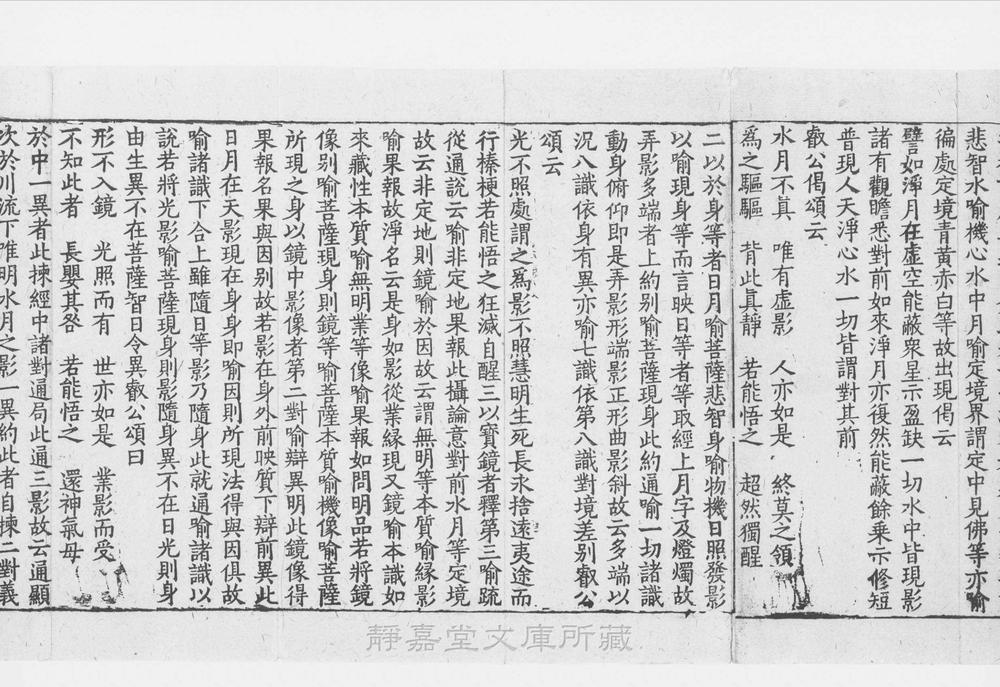 悲智水喻機心水中月喻定境界謂定中見佛等亦喻
徧處定境青黃赤白等故出現偈云
譬如淨月在虛空能蔽衆星示盈缺一切水中皆現影
諸有觀瞻悉對前如來淨月亦復然能蔽餘乘示修短
普現人天淨心水一切皆謂對其前
叡公偈頌云
水月不真　唯有虛影　人亦如是　終莫之領
爲之驅驅　背此真靜　若能悟之　超然獨醒
二以於身等者日月喻菩薩悲智身喻物機日照發影
以喻現身等而言映日等者等取經上月字及燈燭故
弄影多端者上約別喻菩薩現身此約通喻一切諸識
動身俯仰即是弄影形端影正形曲影斜故云多端以
況八識依身有異亦喻七識依第八識對境差别叡公
頌云
光不照處謂之爲影不照慧明生死長永捨遠夷途而
行榛梗若能悟之狂滅自醒三以寶鏡者釋第三喻疏
從通說云喻非定地果報此攝論意對前水月等定境
故云非定地則鏡喻於因故云謂無明等本質喻緣影
喻果報故淨名云是身如影從業緣現又鏡喻本識如
來藏性本質喻無明業等像喻果報如問明品若將鏡
像別喻菩薩現身則鏡等喻菩薩本質喻機像喻菩薩
所現之身以鏡中影像者第二對喻辯異明此鏡像得
果報名果與因别故若影在身外前映質下辯前異此
日月在天影現在身身即喻因則所現法得與因俱故
喻諸識下合上雖隨日等影乃隨身此就通喻諸識以
說若將光影喻菩薩現身則影隨身異不在日光則身
由生異不在菩薩智日令異叡公頌曰
形不入鏡　光照而有　世亦如是　業影而受
不知此者　長嬰其咎　若能悟之　還神氣母
於中一異者此揀經中諸對通局此通三影故云通顯
次於川流下唯明水月之影一異約此者自揀二對義
靜嘉堂文庫所藏